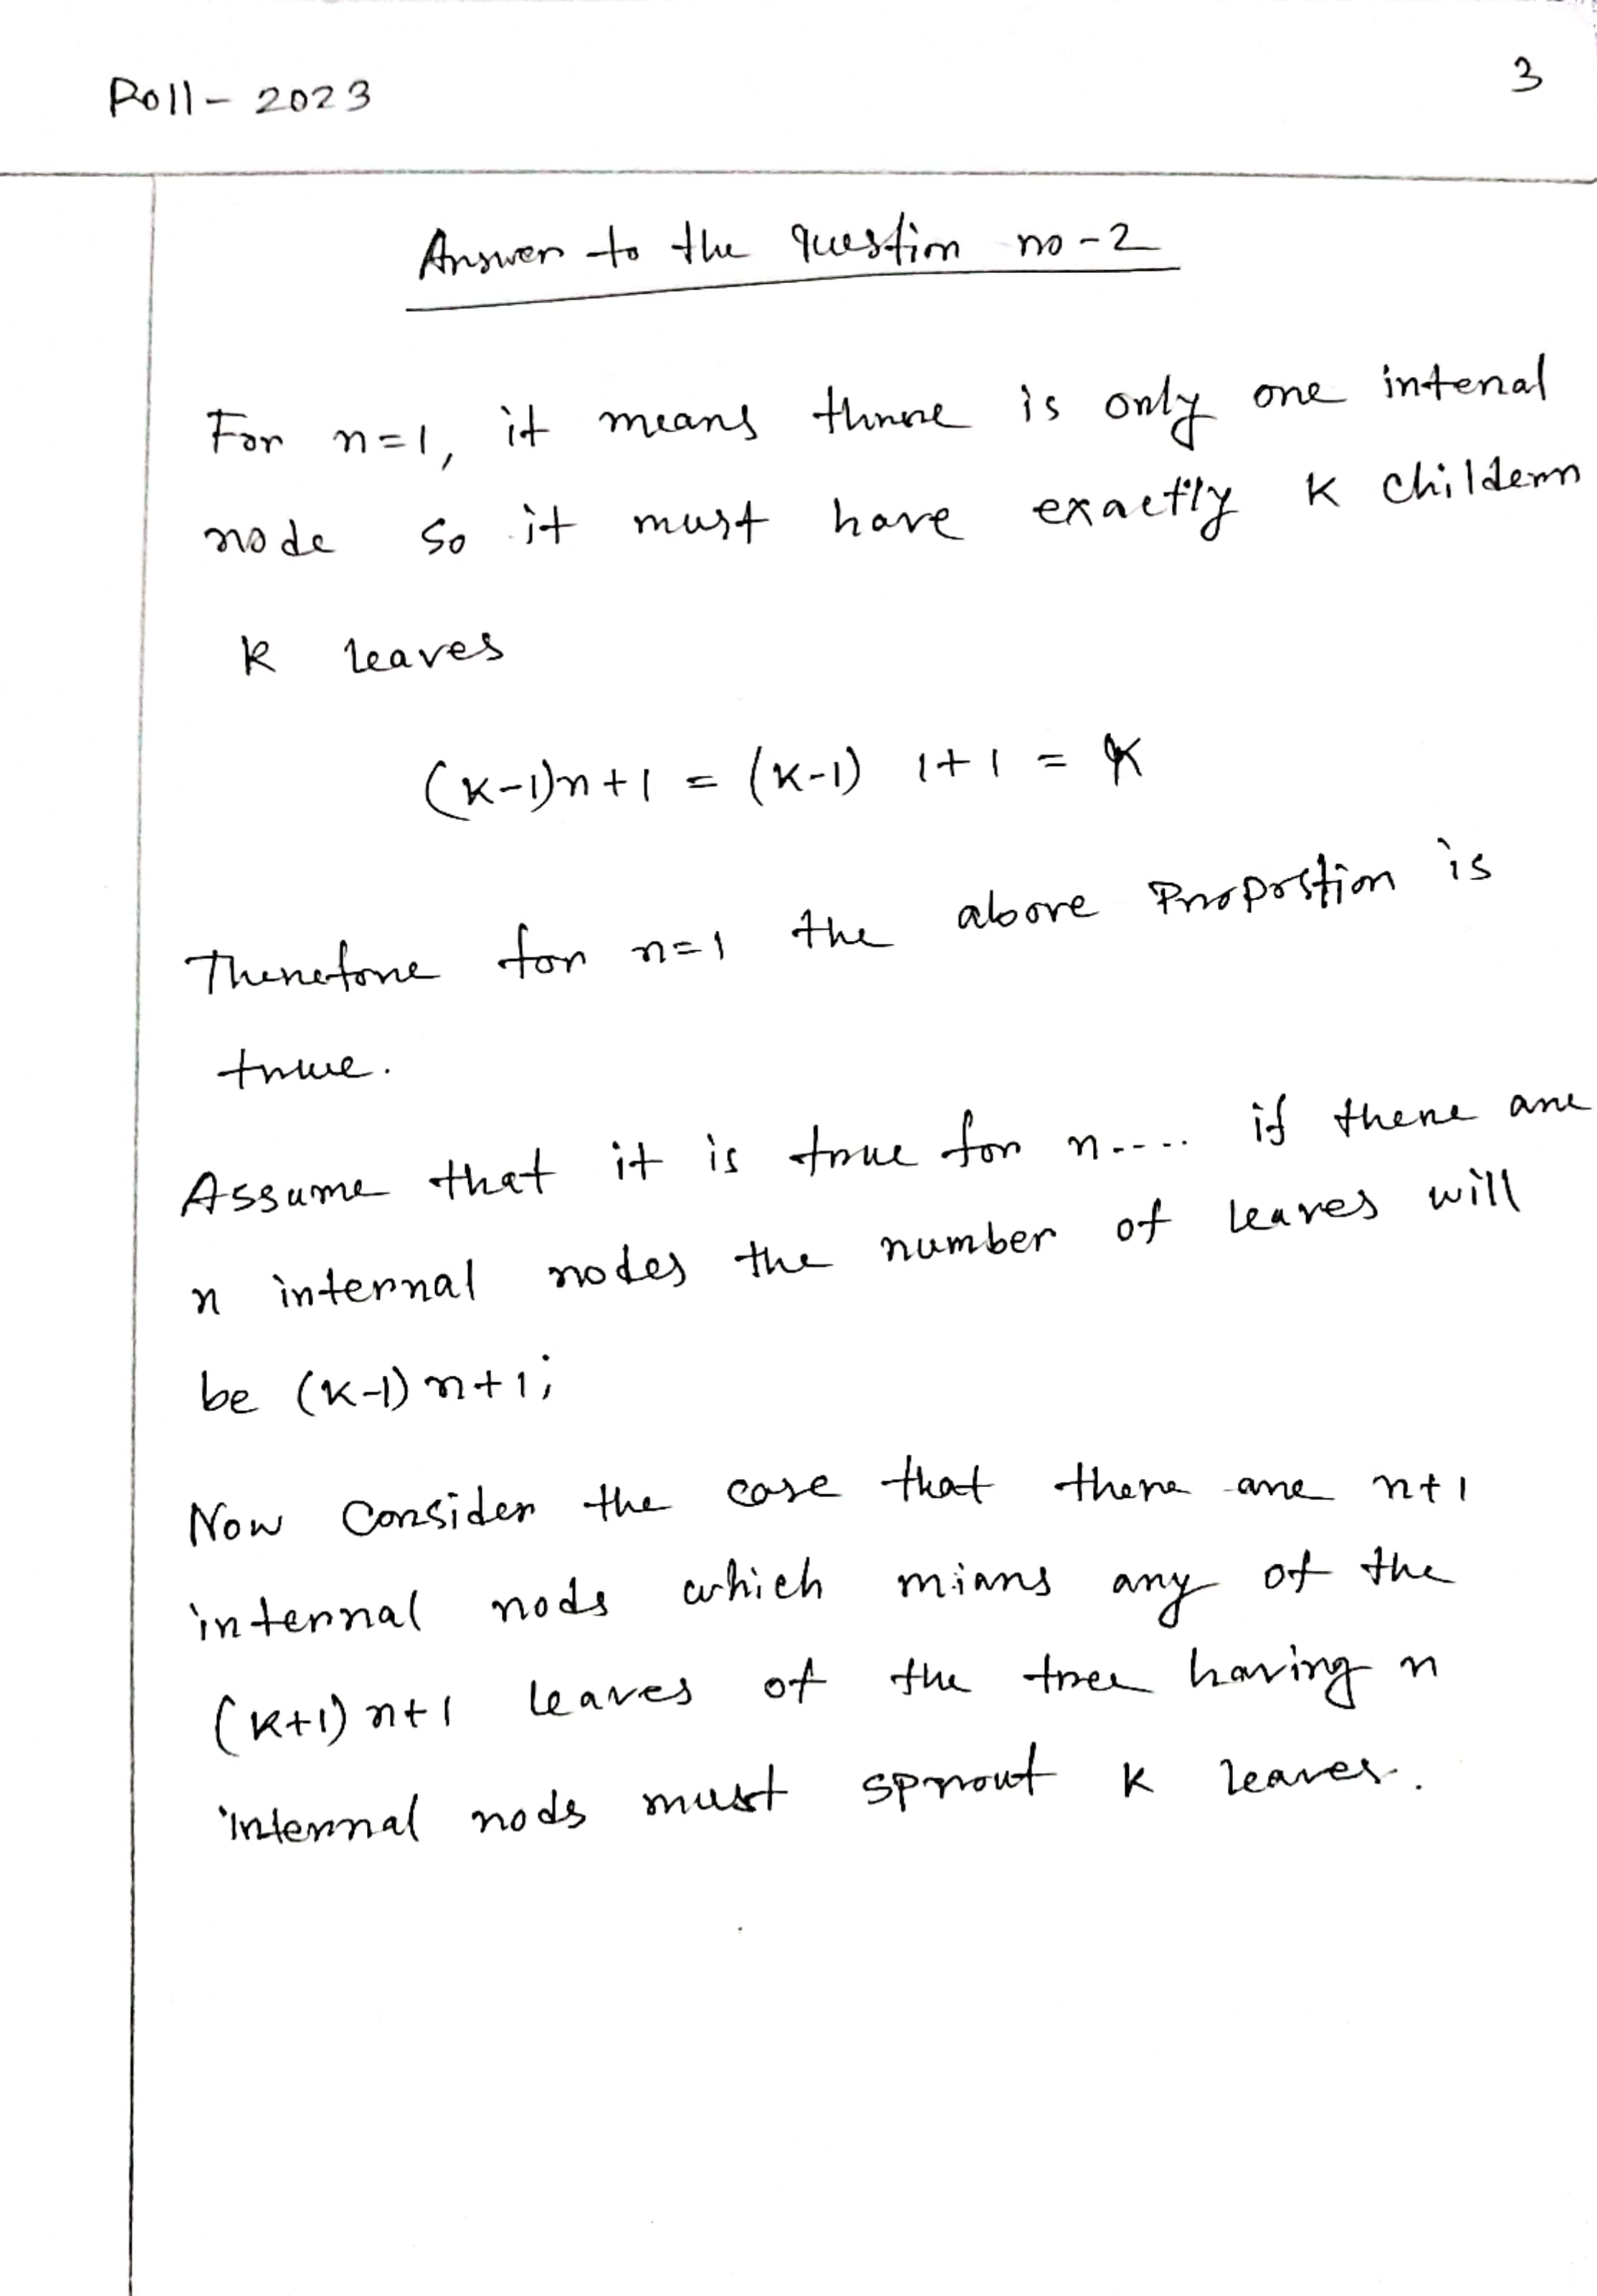 Roll - 2023
3
Answer to the question no - 2
For n=1, it means there is only one intenal
node so it must have exactly K childern
K leaves
(K-1)n+1 = (K-1) 1+1 = K
Therefore for n=1 the above Propostion is
true.
Assume that it is true for n---- if there are
n internal nodes the number of leaves will
be (K-1) n+1;
Now Consider the case that there are n+1
internal nods which mians any of the
(K+1) n+1 leaves of the tree having n
internal nods must sprout K leaves.